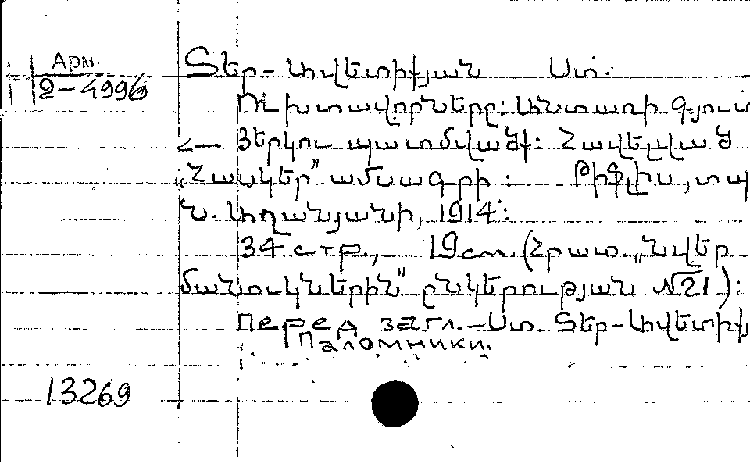 Арм.
2-4996
Տեր-Ավետիքյան Ստ.
Ուխտավորները: Անտառի գյուտ
<— 3երկու պատմված: Հավելված
„Հասկեր" ամսագրի: Թիֆլիս, տպ
Ն. Աղանյանի, 1914:
34 стр., 19см. (Հրատ. „Նվեր
մանուկներին" ընկերության №21):
Перед загл.-Ստ. Տեր-Ավետիք
Паломники.
13269